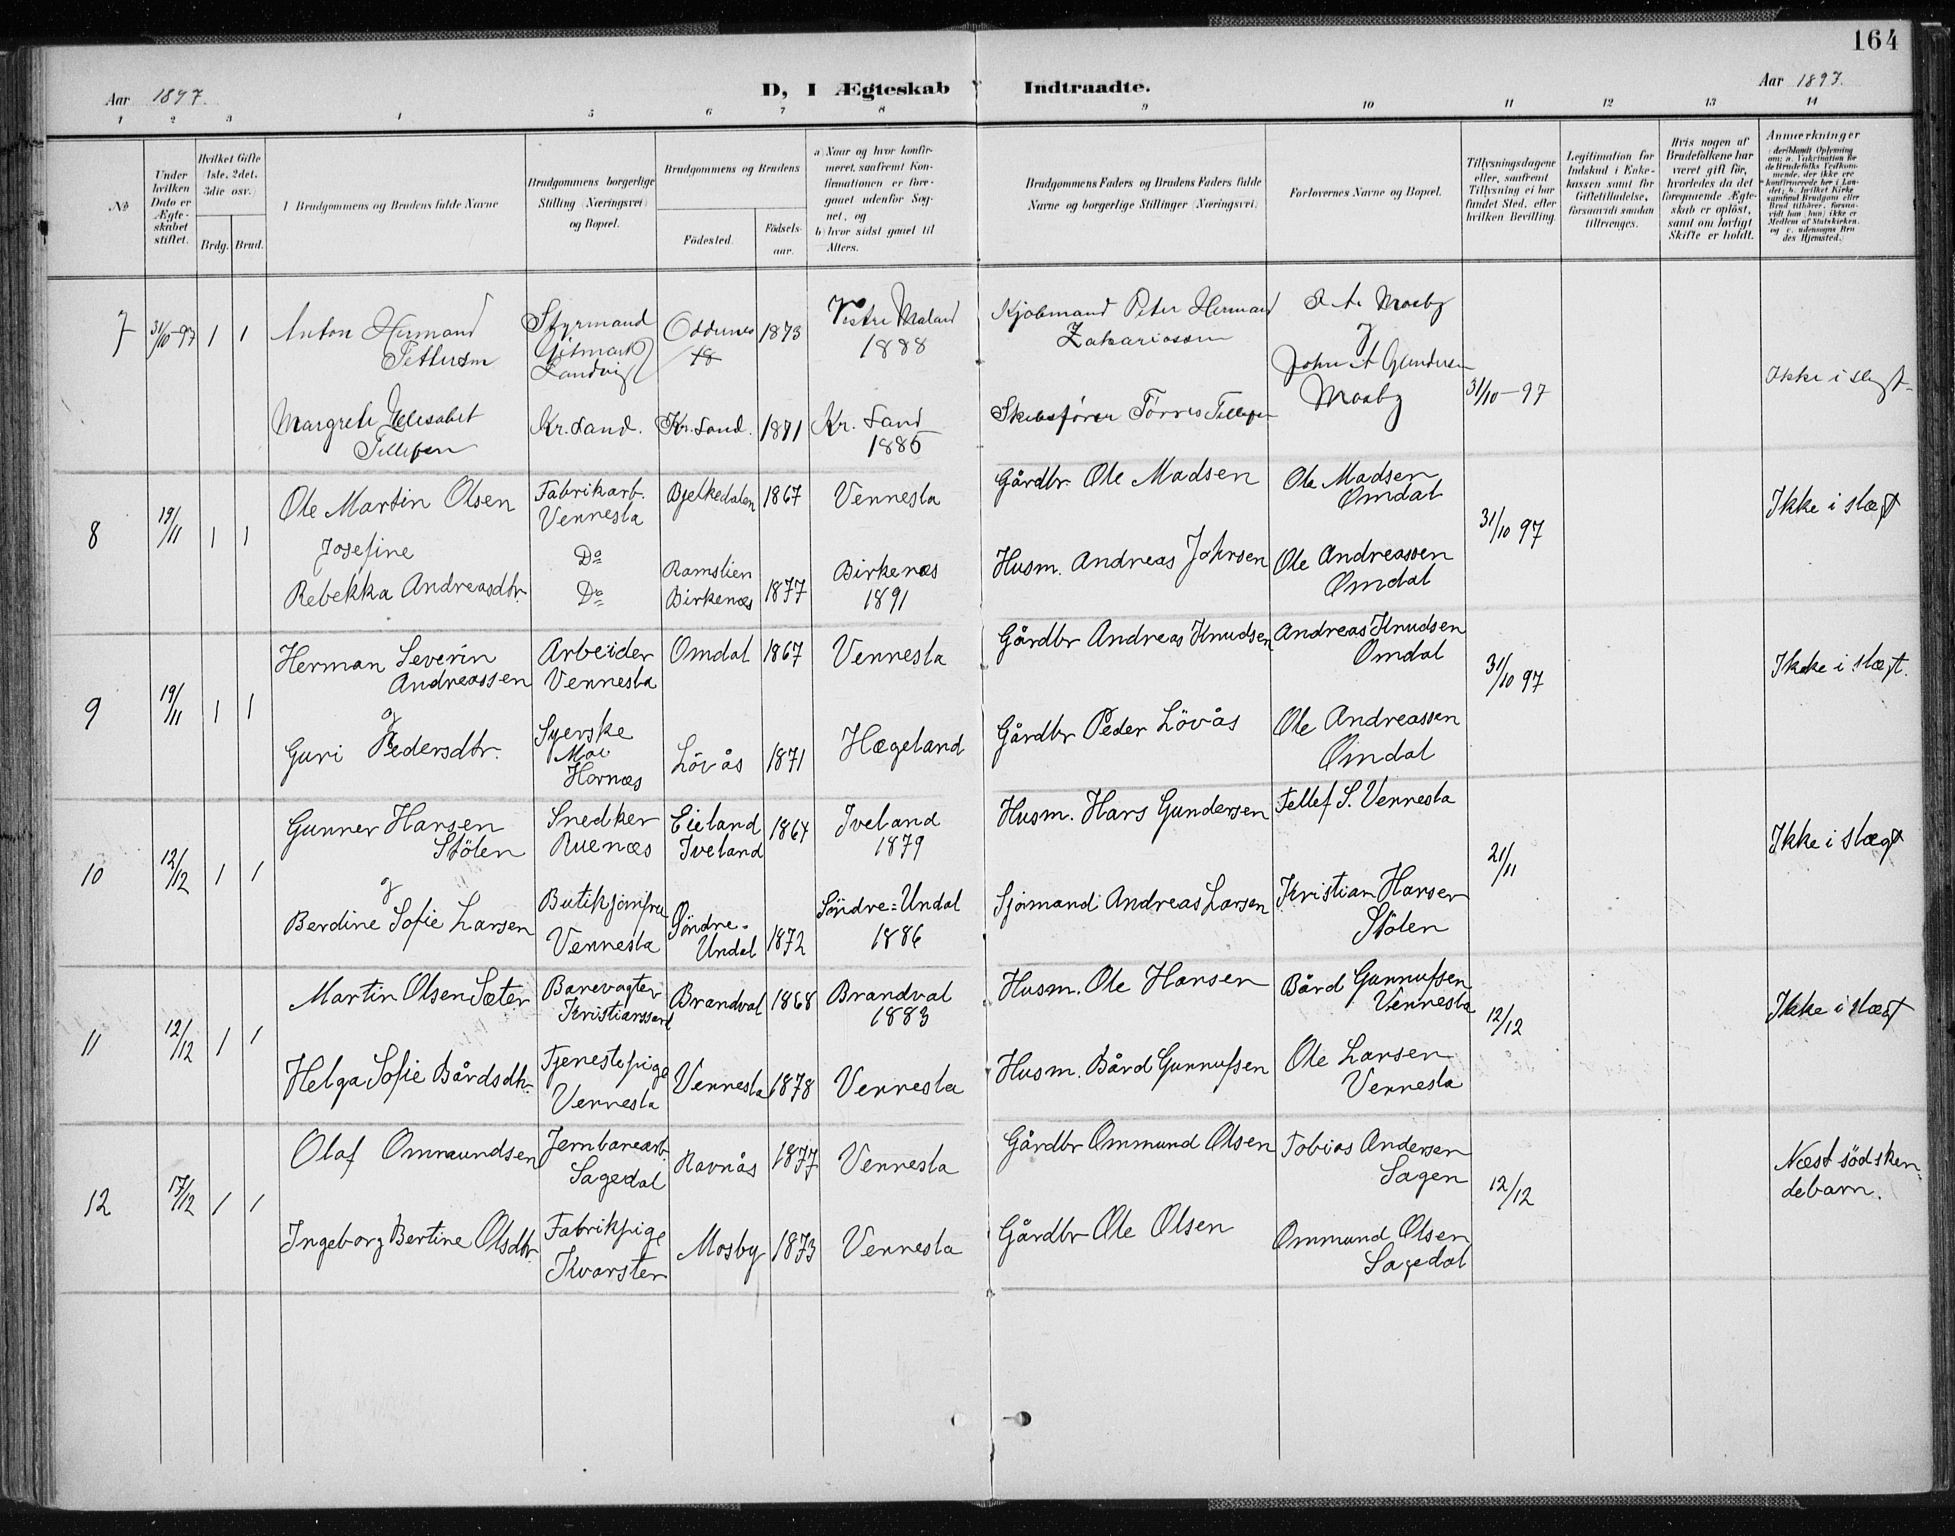 164
Aar 1897.
D, I Ægteskab Indtraadte.
Aar 1897.
1 2 3 4 5 6 7 8 9 10 11 12 13 14
No
Under hvilken Dato er Ægteskabet stiftet.
Hvilket Gifte (1ste, 2det, 3die osv.)
Brdg. Brud.
1 Brudgommens og Brudens fulde Navne
Brudgommens borgerlige Stilling (Næringsvei) og Bopæl.
Brudgommens og Brudens
Födested.
Födsels-aar.
a) Naar og hvor konfirmeret, saafremt Konfirmationen er foregaaet udenfor Sognet, og
b) hvor sidst gaaet til Alters.
Brudgommens Faders og Brudens Faders fulde Navne og borgerlige Stillinger (Næringsvei)
Forlovernes Navne og Bopæl.
Tillysningsdagene eller, saafremt Tillysning ei har fundet Sted, efter hvilken Bevilling.
Legitimation for Indskud i Enkekassen samt for Giftetilladelse, forsaavidt saadan tiltrænges.
Hvis nogen af Brudefolkene har været gift før, hvorledes da det foregaaende Ægteskab er oplöst, samt om lovligt Skifte er holdt.
Anmærkninger
7 31/10-97 1 1
Anton Hermand
Pettersen
Styrmand
Landvig
Oddernes
1873
1888
Kjöbmand Peter Hermand
Zakariassen
Mosby
og
John A Gundersen
Mosby
31/10-97
Ikke i slegt.
Margrete Elisabet
Tellefsen
Kr.sand.
Kr.sand.
1871
Kr. Sand
1886
Skibsfører Törres Tellefsen
8 19/11 1 1
Ole Martin Olsen
Fabrikarb.
Vennesla
Bjelkedalen
1867
Vennesla
Gårdbr. Ole Madsen
Ole Madsen
Omdal
31/10 97
Ikke i slægt
Josefine
Rebekka Andreasdtr.
Do
Do
Ramslien
Birkenæs
1877
Birkenæs
1891
Husm. Andreas Johnsen
Ole Andreassen
Omdal
9 19/11 1 1
Herman Severin
Andreassen
Arbeider
Vennesla
Omdal
1867
Vennesla
Gårdbr Andreas Knudsen
Andreas Knudsen
Omdal
31/10 97
Ikke i slægt.
og
Guri Pedersdtr.
Syerske
Moi
Hornæs
Lövås
1871
Hægeland
Gårdbr Peder Lövås
Ole Andreassen
Omdal
10 12/12 1 1
Gunner Hansen
Stölen
Snedker
Ruenæs
Eieland
Iveland
1864
Iveland
1879
Husm. Hans Gundersen
Tellef S. Vennesla
21/11
Ikke i slægt
og
Berdine Sofie Larsen
Butikjomfru
Vennesla
Söndre-
Undal
1872
Söndre-Undal
1886
Sjömand Andreas Larsen
Kristian Hansen
Stölen
11 12/12 1 1
Martin Olsen Sæter
Banevogter
Kristianssand
Brandval
1868
Brandval
1883
Husm. Ole Hansen
Bård Gunnufsen
Vennesla
12/12
Ikke i slægt
Helga Sofie Bårdsdtr.
Tjenestepige
Vennesla
Vennesla
1878
Vennesla
Husm. Bård Gunnufsen
Ole Larsen
Vennesla
12 17/12 1 1
Olaf Ommundsen
Jernbanearb.
Sagedal
Ravnås
1877
Vennesla
Gårdbr Ommund Olsen
Tobias Andersen
Sagen
12/12
Næstsödsken-
debarn.
Ingeborg Bertine Olsdtr.
Fabrikpige
Kvarsten
Mosby
1873
Vennesla
Gårdbr Ole Olsen
Ommund Olsen
Sagedal